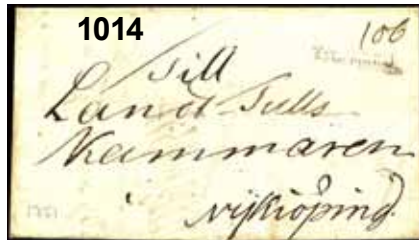 1014
106
Till
Land-Tulls
Kammaren
Nÿkiöping.